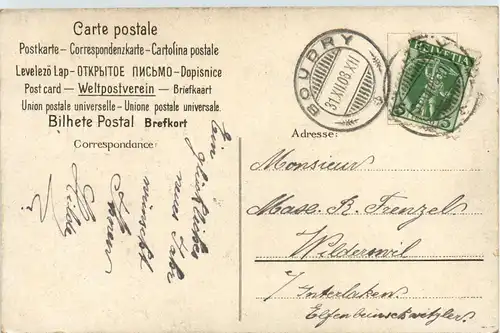 Carte postale
Postkarte – Correspondenzkarte – Cartolina postale
Levelező Lap – ОТКРЫТОЕ ПИСЬМО – Dopisnice
Post card — Weltpostverein — Briefkaart
Union postale universelle – Unione postale universale.
Bilhete Postal Brefkort
Correspondance:
Adresse:
BOUDRY
31.XII.08.XII
HELVETIA
Ein
glückliches
neues Jahr
wünscht
Ihnen
Monsieur
Max. R. Frenzel
Wilderswil
Interlaken